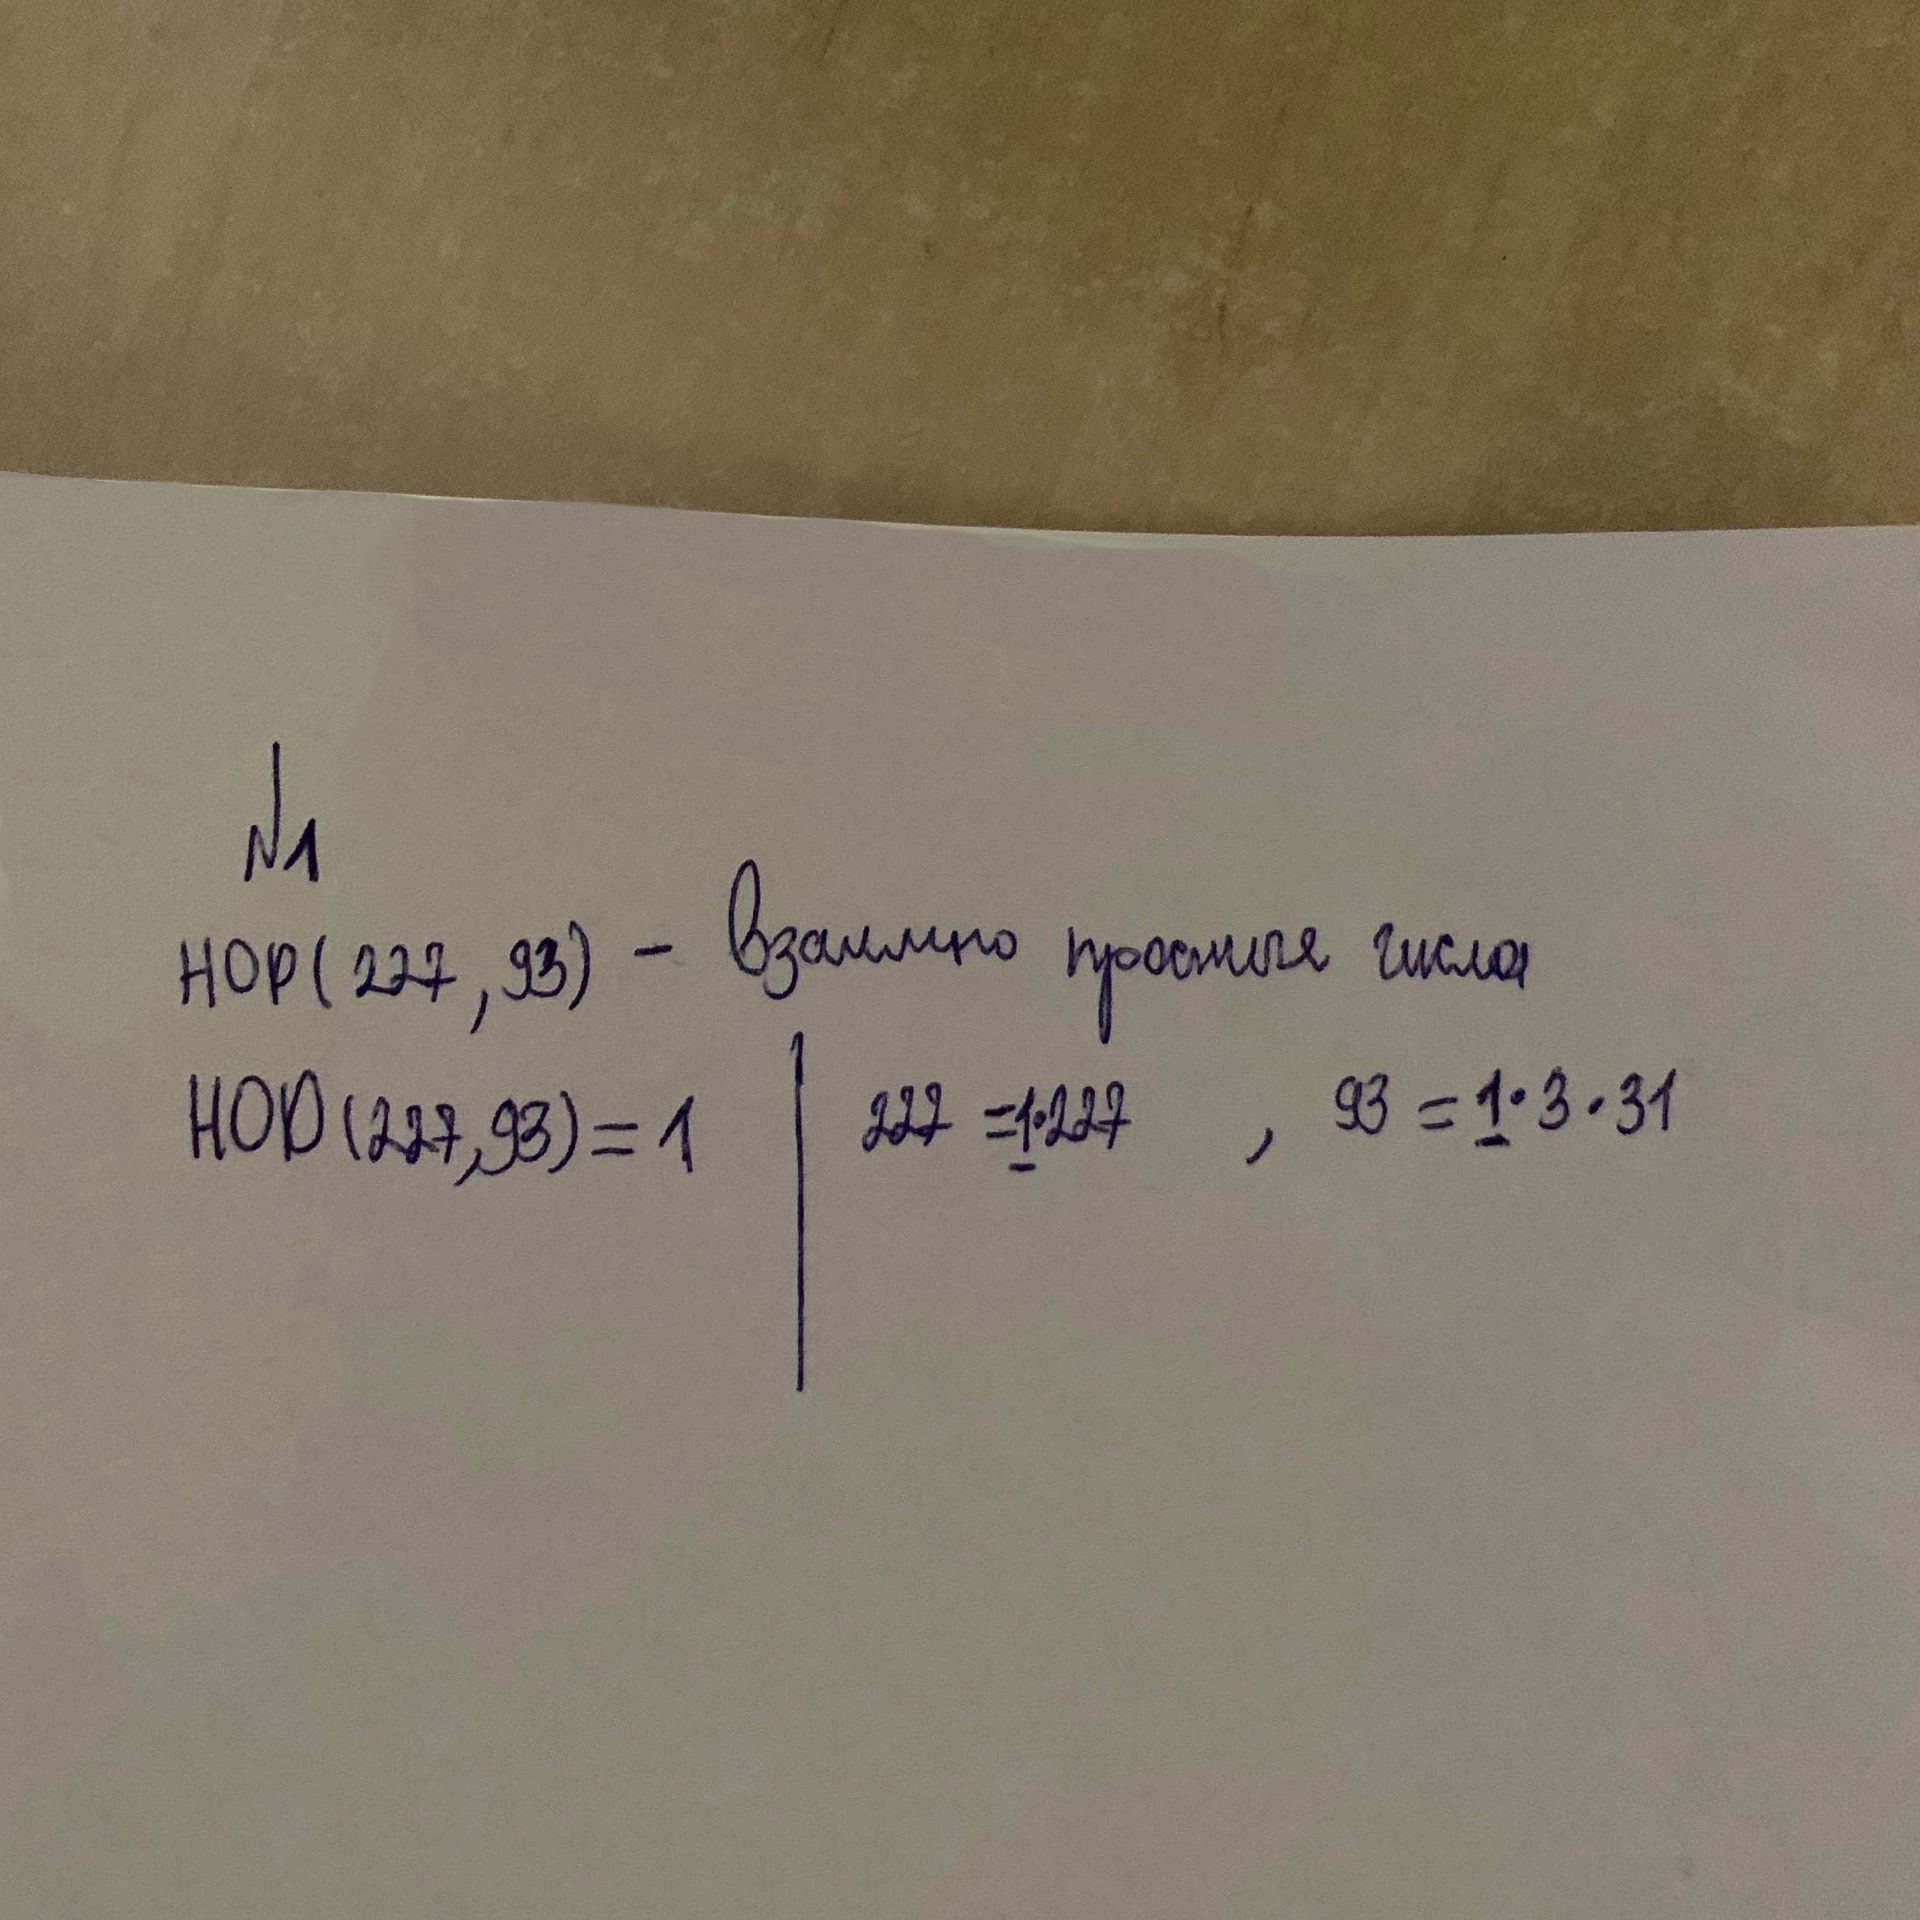 №1
НОД(227, 93) - Взаимно простые числа
НОД(227,93)=1 | 227 =1·227 , 93 = 1·3·31